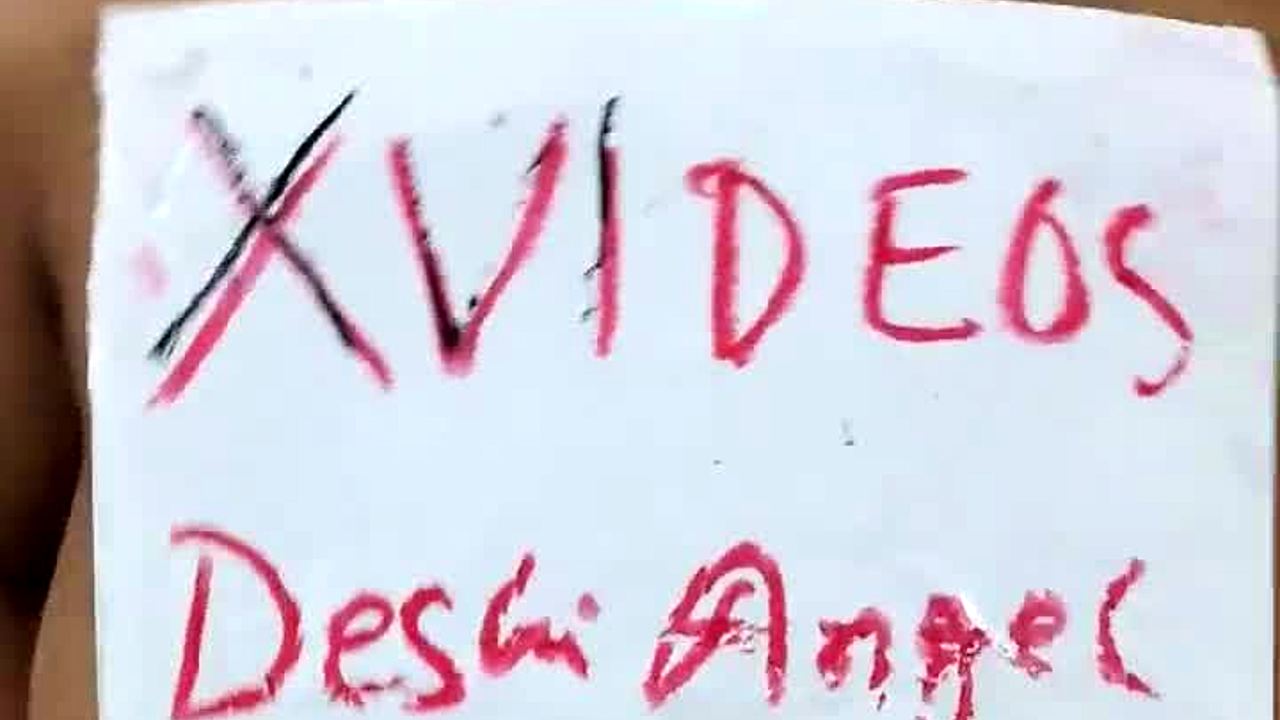 XVIDEOS
Desi Angel